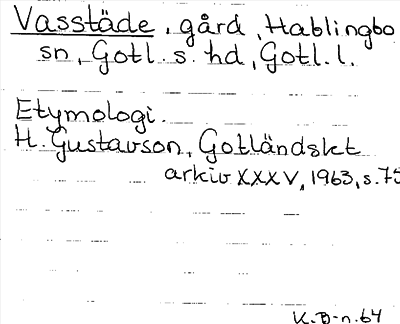 Vasstäde, gård, Hablingbo
sn, Gotl. s. hd, Gotl. l.
Etymologi.
H. Gustavson, Gotländskt
arkiv XXXV, 1963, s. 75
K.B-n. 64